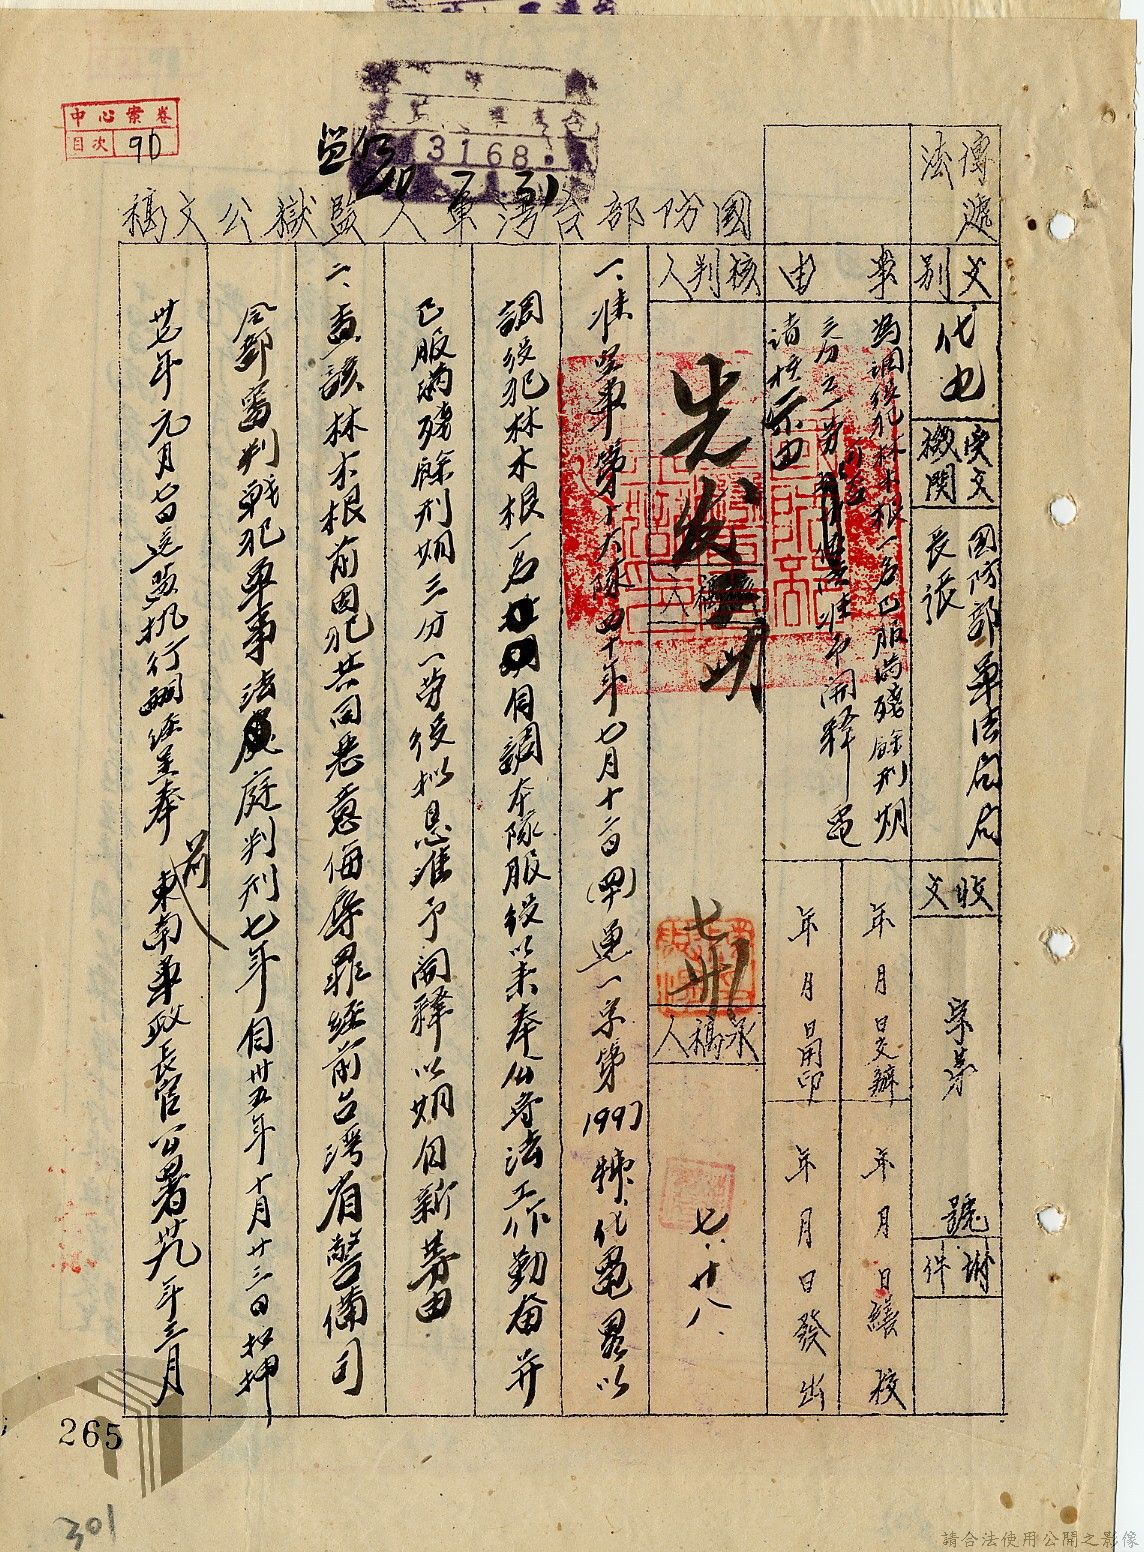 中心案卷
目次
90
3168
國防部台灣軍人監獄公文稿
文別
代电
受文機関
國防部軍法局局長張
收文
字第
號
附件
事由
為調役犯林木根一名已服滿殘餘刑期
三分之一勞役
准予開釋電
請核示由
年 月 日交辦
年 月 日繕校
年 月 日用印
年 月 日發出
核判人
先发
七卅
承稿人
七、廿八
一、准空軍第十大隊四十年七月十二日
字第1997號代電畧以
調役犯林木根一名
自調本隊服役以来奉公守法工作勤奮并
已服滿殘餘刑期三分一勞役拟恳准予開釋以期自新等由
二、查該林木根前因犯共同恶意侮辱罪經前台湾省警備司
令部審判戰犯軍事法庭判刑七年自卅五年十月廿三日扣押
卅七年元月七日送監执行嗣經呈奉前東南軍政長官公署卅九年三月
265
301
請合法使用公開之影像